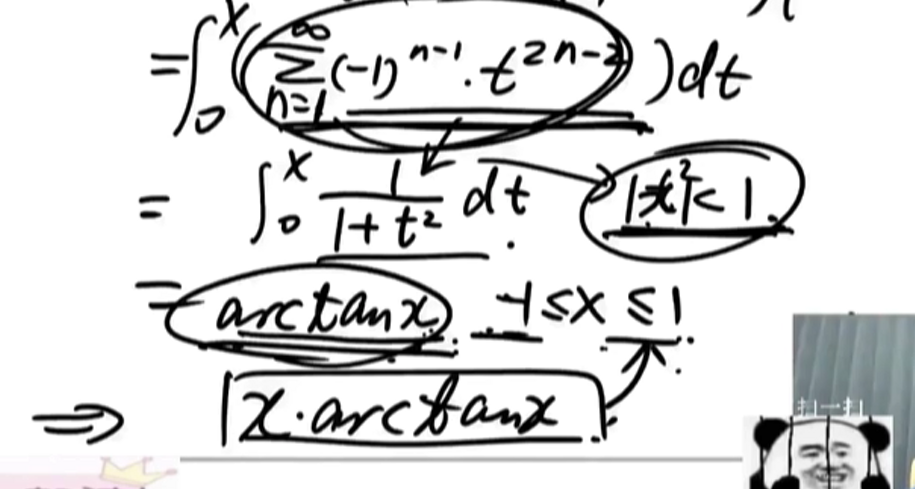 = ∫₀ˣ ( ∑_{n=1}^{∞} (-1)^{n-1} · t^{2n-2} ) dt
= ∫₀ˣ 1/(1+t²) dt . |x²| < 1
= arctanx . -1 ≤ x ≤ 1
⇒ x · arctanx
扫一扫